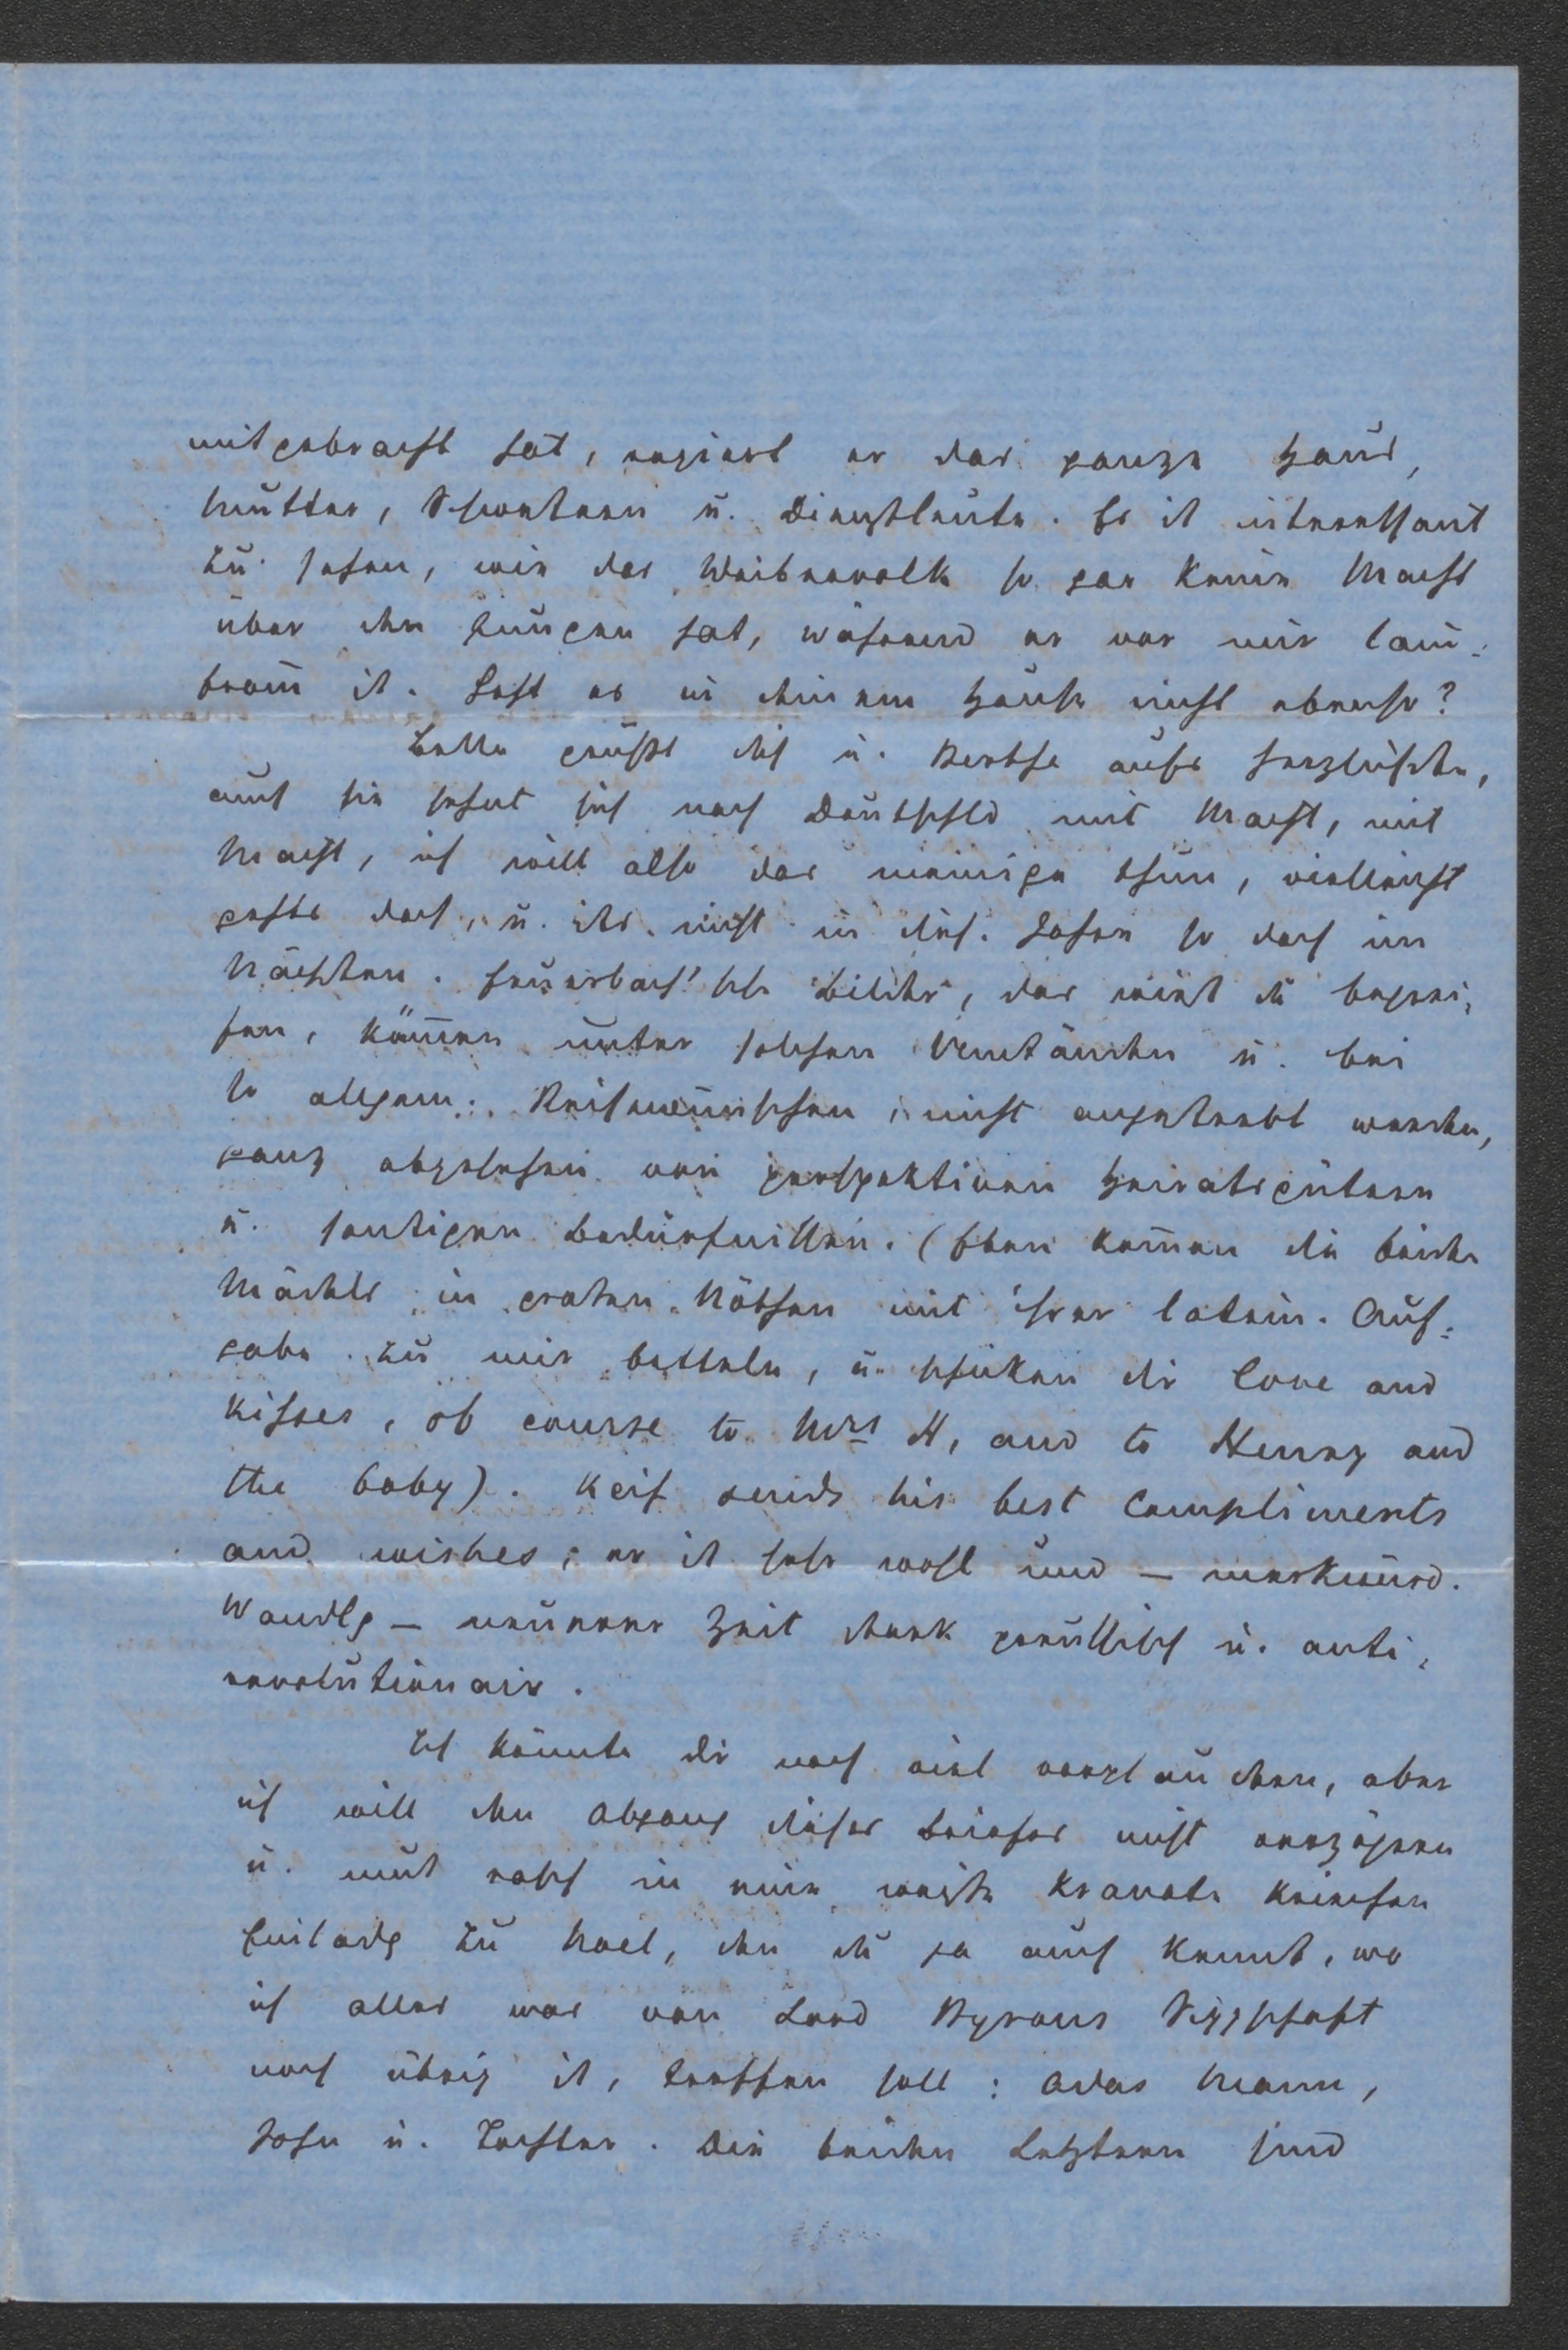 mitgebracht hat, regiert er das ganze Haus,
Mutter, Schwestern u. Dienstleute. Es ist interessant
zu sehen, wie das Weibervolk so gar keine Macht
über den Jungen hat, während er vor mir lam̅-
from̅ ist. Geht es in deinem Hause nicht ebenso?
Bella grüßt dich u. Berthe aufs herzlichste,
auch sie sehnt sich nach Deutschld mit Macht, mit
Macht, ich will also das meinige thun, vielleicht
gehts doch, u. ists nicht in dies. Jahre so doch im
Nächsten. Feuerbach'sche Bilder, das wirst du begrei-
fen, kom̅en unter solchen Umständen u. bei
so allgem. Reisewünschen, nicht angestrebt werden,
ganz abgesehen von perspektiven Heiratsgütern
u. sonstigen Bedürfnissen. (Eben kom̅en die beide
Mädels in großen Nöthen mit ihrer latein. Auf-
gabe zu mir betteln, u. schicken dir love and
kisses, of course to Mrs H, and to Henry and
the baby). Keif sends his best compliments
and wishes; er ist sehr wohl und – merkwürd.
Wandlg – neuerer Zeit stark preussisch u. anti-
revolutionair.
Ich könnte dir noch viel vorplaudern, aber
ich will den Abgang dieses Briefes nicht verzögern
u. muß rasch in eine weiße Kravate kriechen
Einladg zu Noel, den du ja auch kennst, wo
ich alles was von Lord Byrons Sippschaft
noch übrig ist, treffen soll: Adas Mann,
Sohn u. Tochter. Die beiden Letztern sind